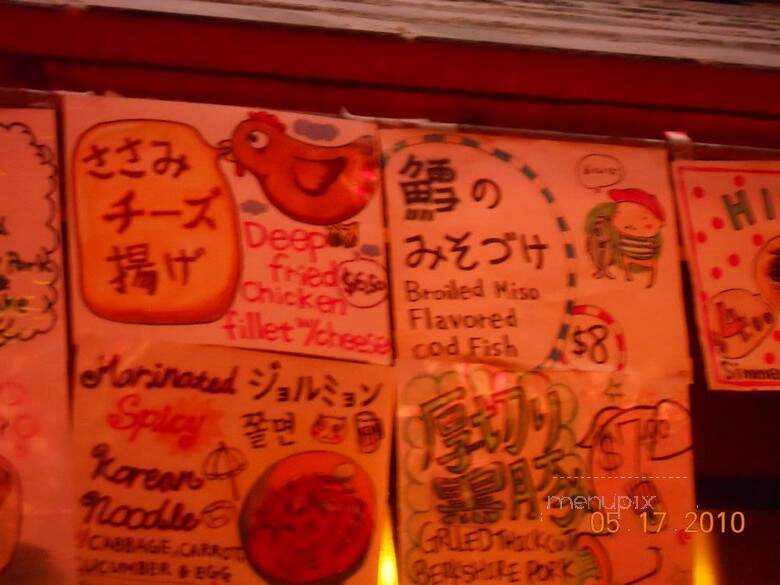 ささみ
チーズ
揚げ
Deep
fried
Chicken
fillet w/cheese
$6.50
鱈の
みそづけ
Broiled Miso
Flavored
cod Fish
$8
Marinated ジョルミョン
Spicy
쫄면
Korean
Noodle
CABBAGE, CARROT
CUCUMBER & EGG
厚切り
黒豚
GRILLED THICK CUT
BERKSHIRE PORK
Pork
menupix
05.17.2010